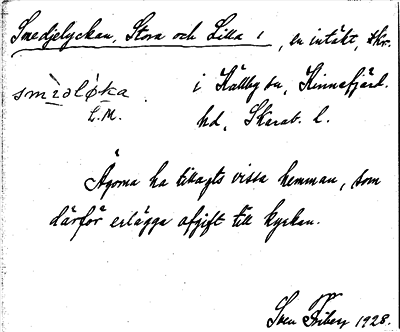 Smedjelyckan, Stora och Lilla, en intäkt, skr.
smìdlø̀ka
L.M.
i Källby sn, Kinnefjärd.
hd, Skarab. l.
Ägorna ha tillagts vissa hemman, som
därför erlägga afgift till kyrkan.
Sven Friberg 1928.